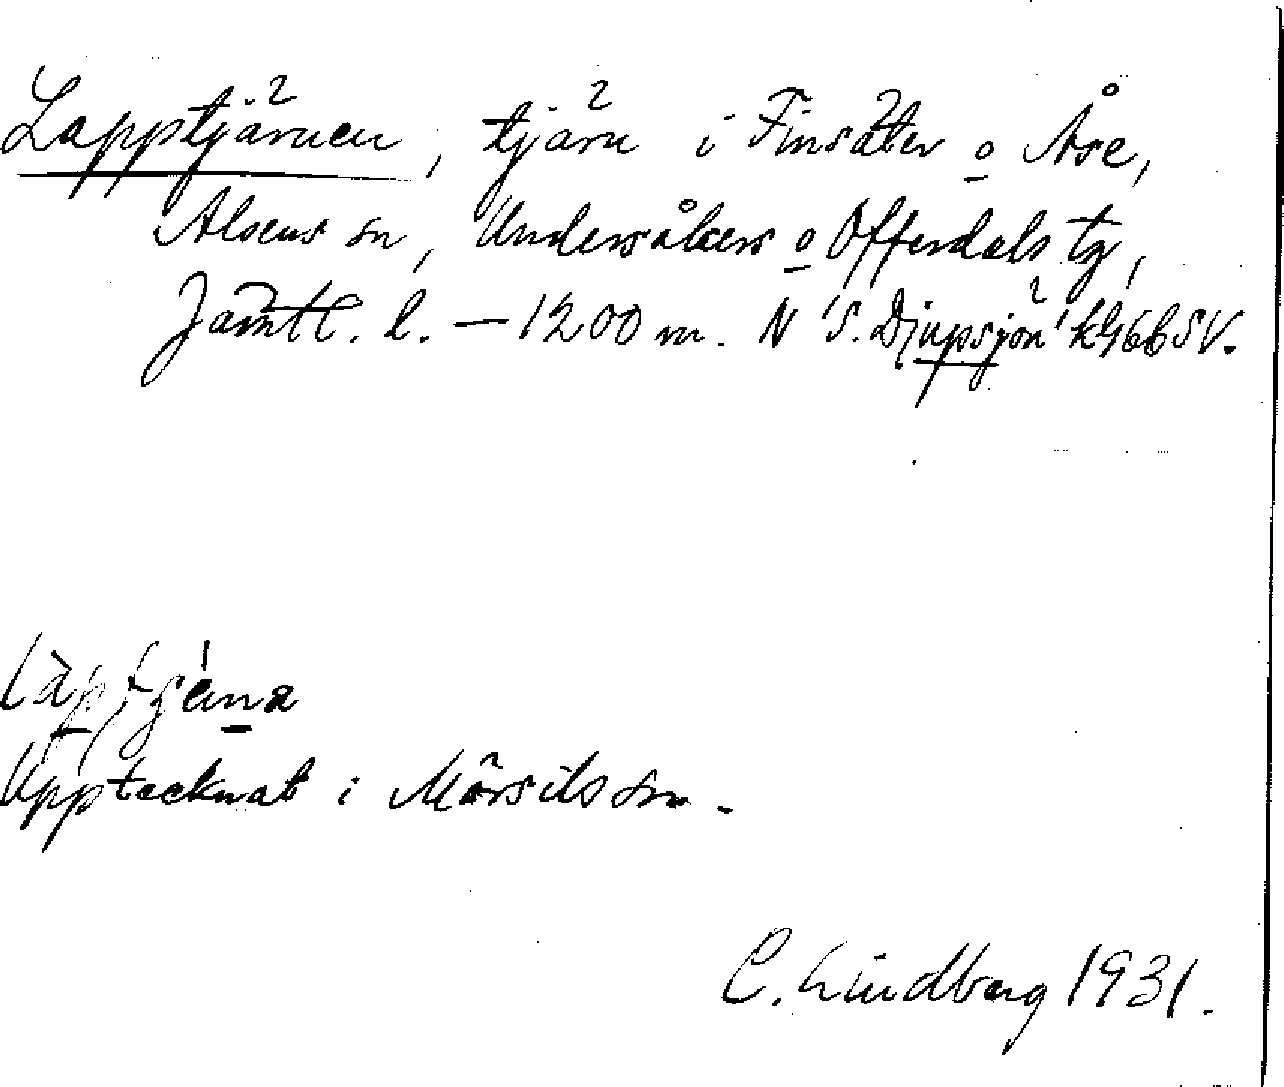 Lapptjärnen, tjärn i Finsäter o Åse,
Alsens sn, Undersåkers o Offerdals tg,
Jämtl. l. — 1200 m. N 'S. Djupsjön' k 466 SV.
Upptecknat i Mörsils sn.
C. Lindberg 1931.